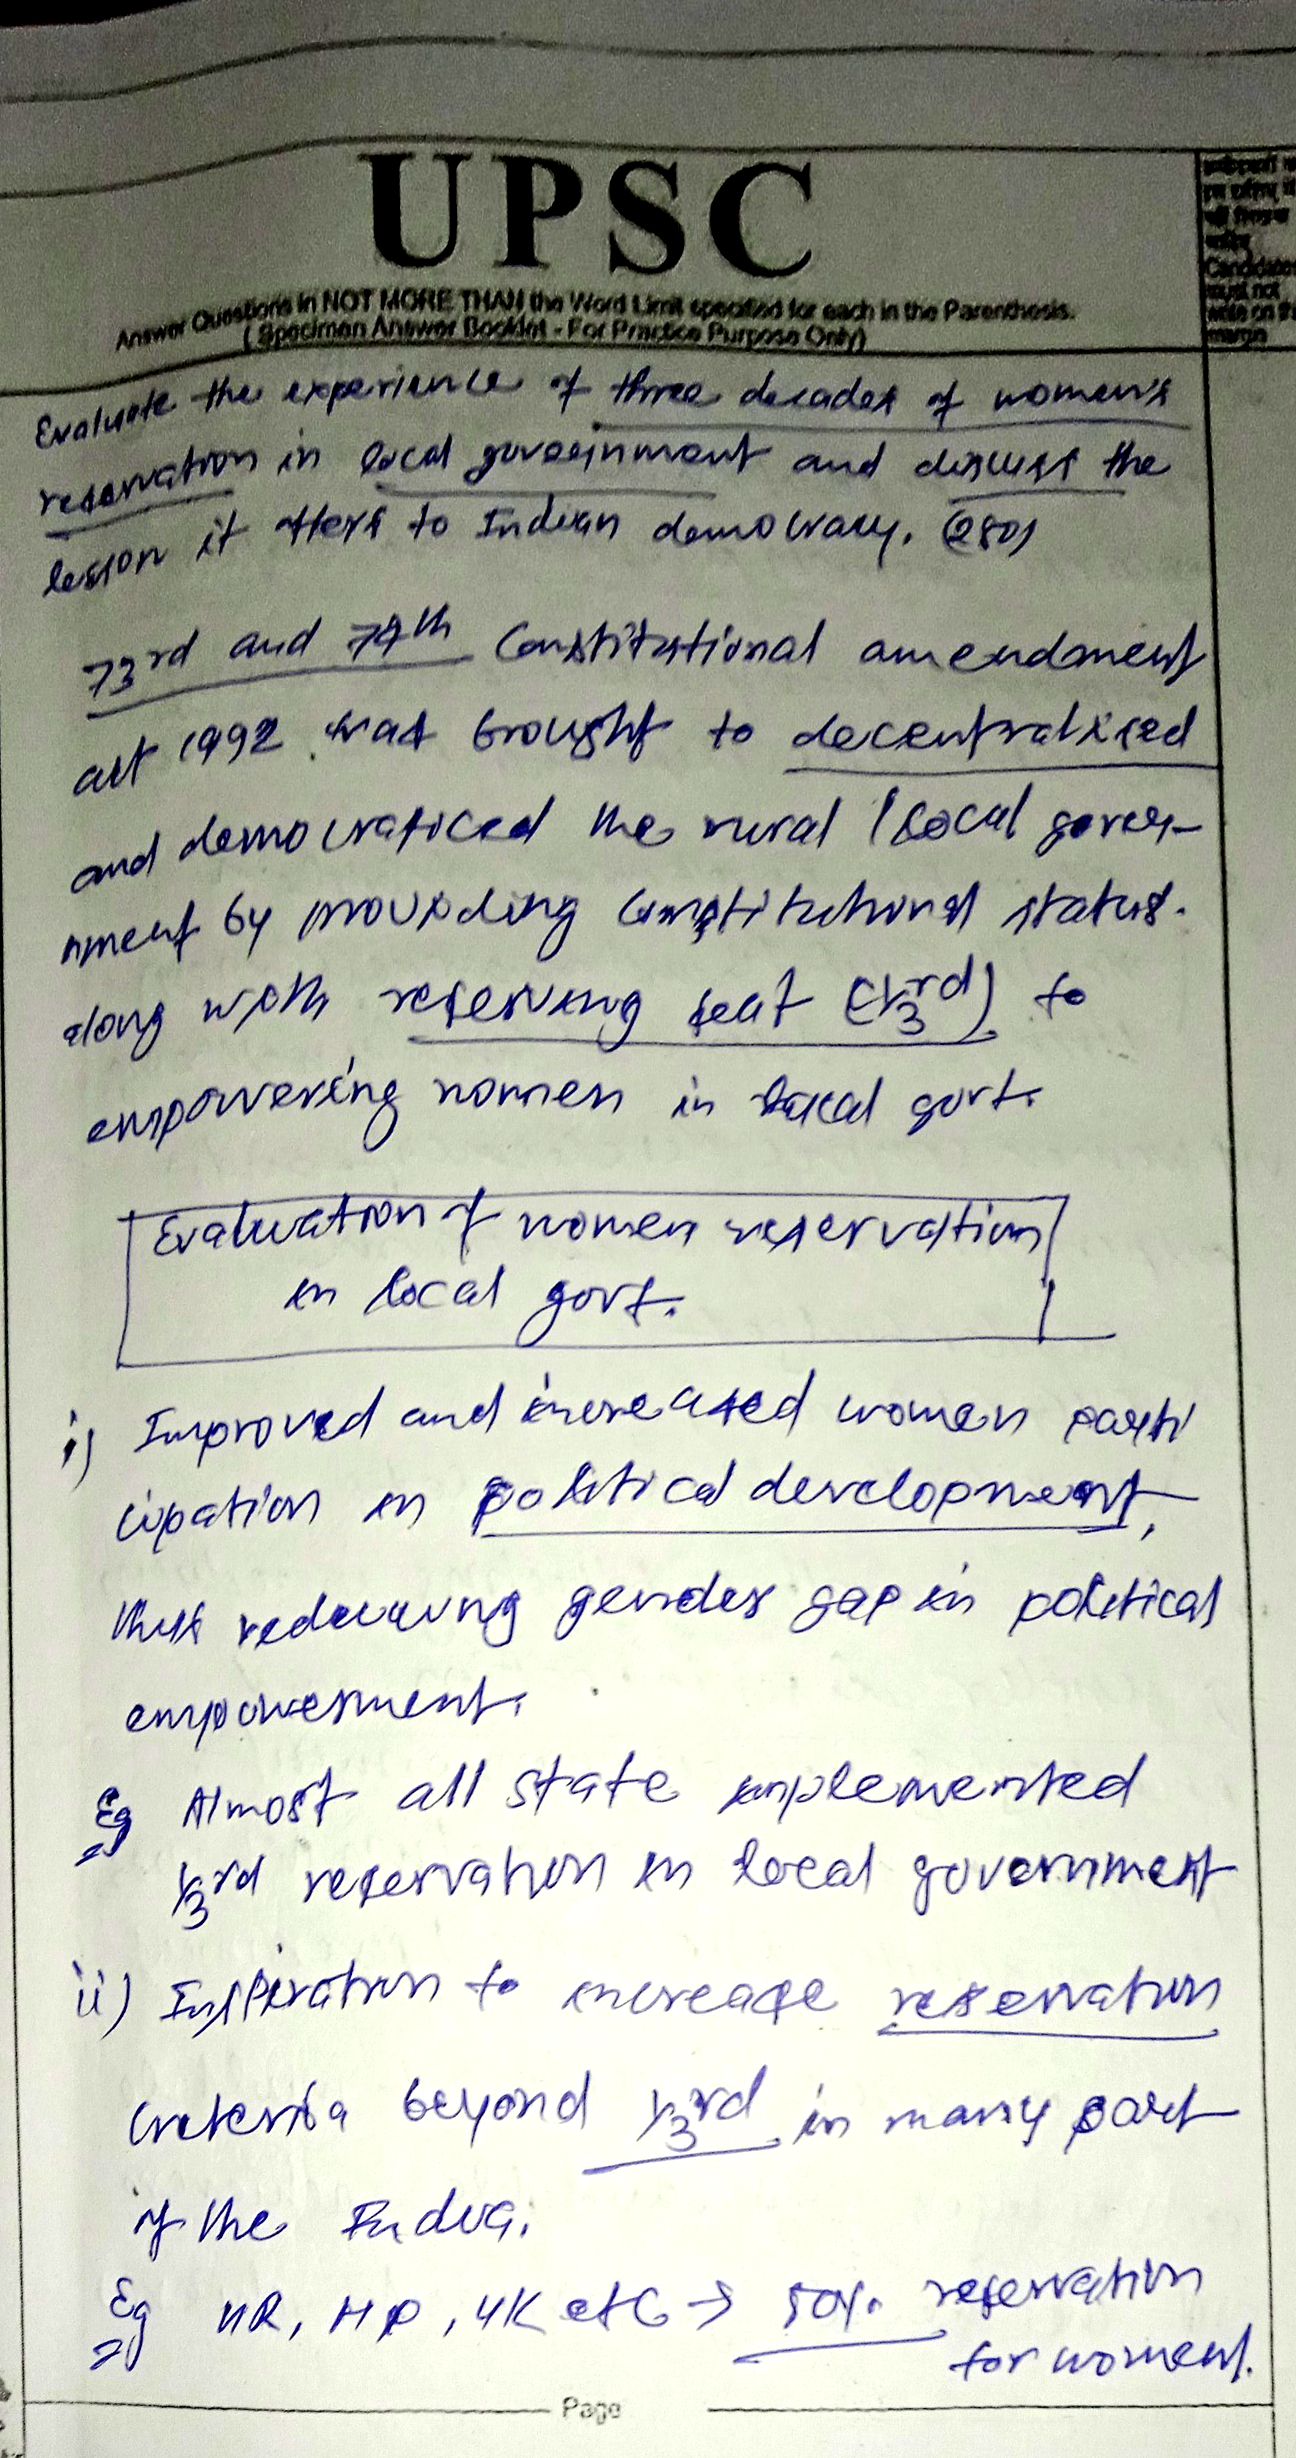 UPSC
Answer Questions in NOT MORE THAN the Word Limit specified for each in the Parenthesis.
(Specimen Answer Booklet - For Practice Purpose Only)
Candidates
must not
write on the
margin
Evaluate the experience of three decades of women's
reservation in local government and discuss the
lesson it offers to Indian democracy. (250)
73rd and 74th Constitutional amendment
act 1992 was brought to decentralised
and democraticed the rural / local gover-
nment by providing constitutional status.
along with reserving seat (1/3rd) to
empowering women in local govt.
Evaluation of women reservation
in local govt.
i) Improved and increased women parti
cipation in political development,
thus reducing gender gap in political
empowerment.
Eg Almost all state implemented
1/3rd reservation in local government
ii) Inspiration to increase reservation
criteria beyond 1/3rd in many part
of the India.
Eg HP, UK etc → 50% reservation
for women.
Page